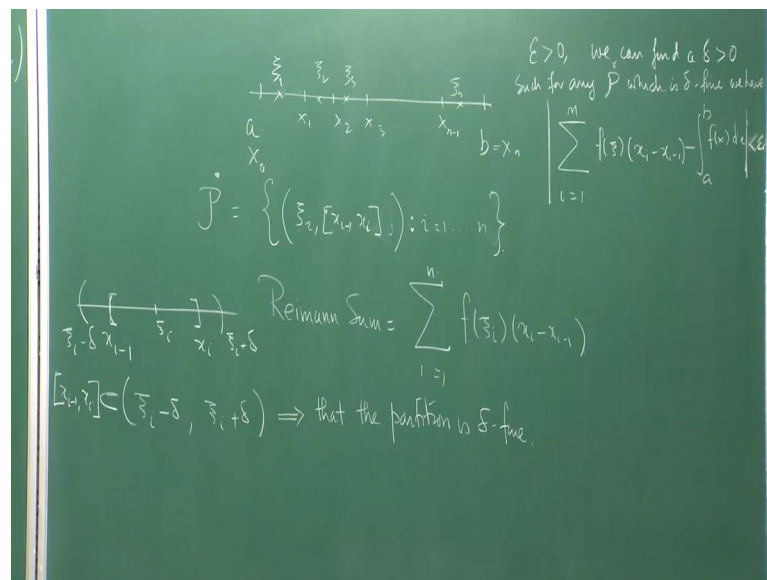 ε>0, we can find a δ>0
Such for any Ṗ which is δ-fine we have
| ∑_{i=1}^{n} f(ξ)(x_i-x_{i-1}) - ∫_a^b f(x)dx | < ε
ξ_1 ξ_2 ξ_3 ξ_n
x_1 x_2 x_3 x_{n-1}
a b=x_n
x_0
Ṗ = {(ξ_i, [x_{i-1}, x_i]) : i=1....n}
Reimann Sum = ∑_{i=1}^{n} f(ξ_i)(x_i-x_{i-1})
ξ_i-δ x_{i-1} ξ_i x_i ξ_i+δ
[x_{i-1}, x_i] ⊂ (ξ_i-δ, ξ_i+δ) ⟹ that the partition is δ-fine.